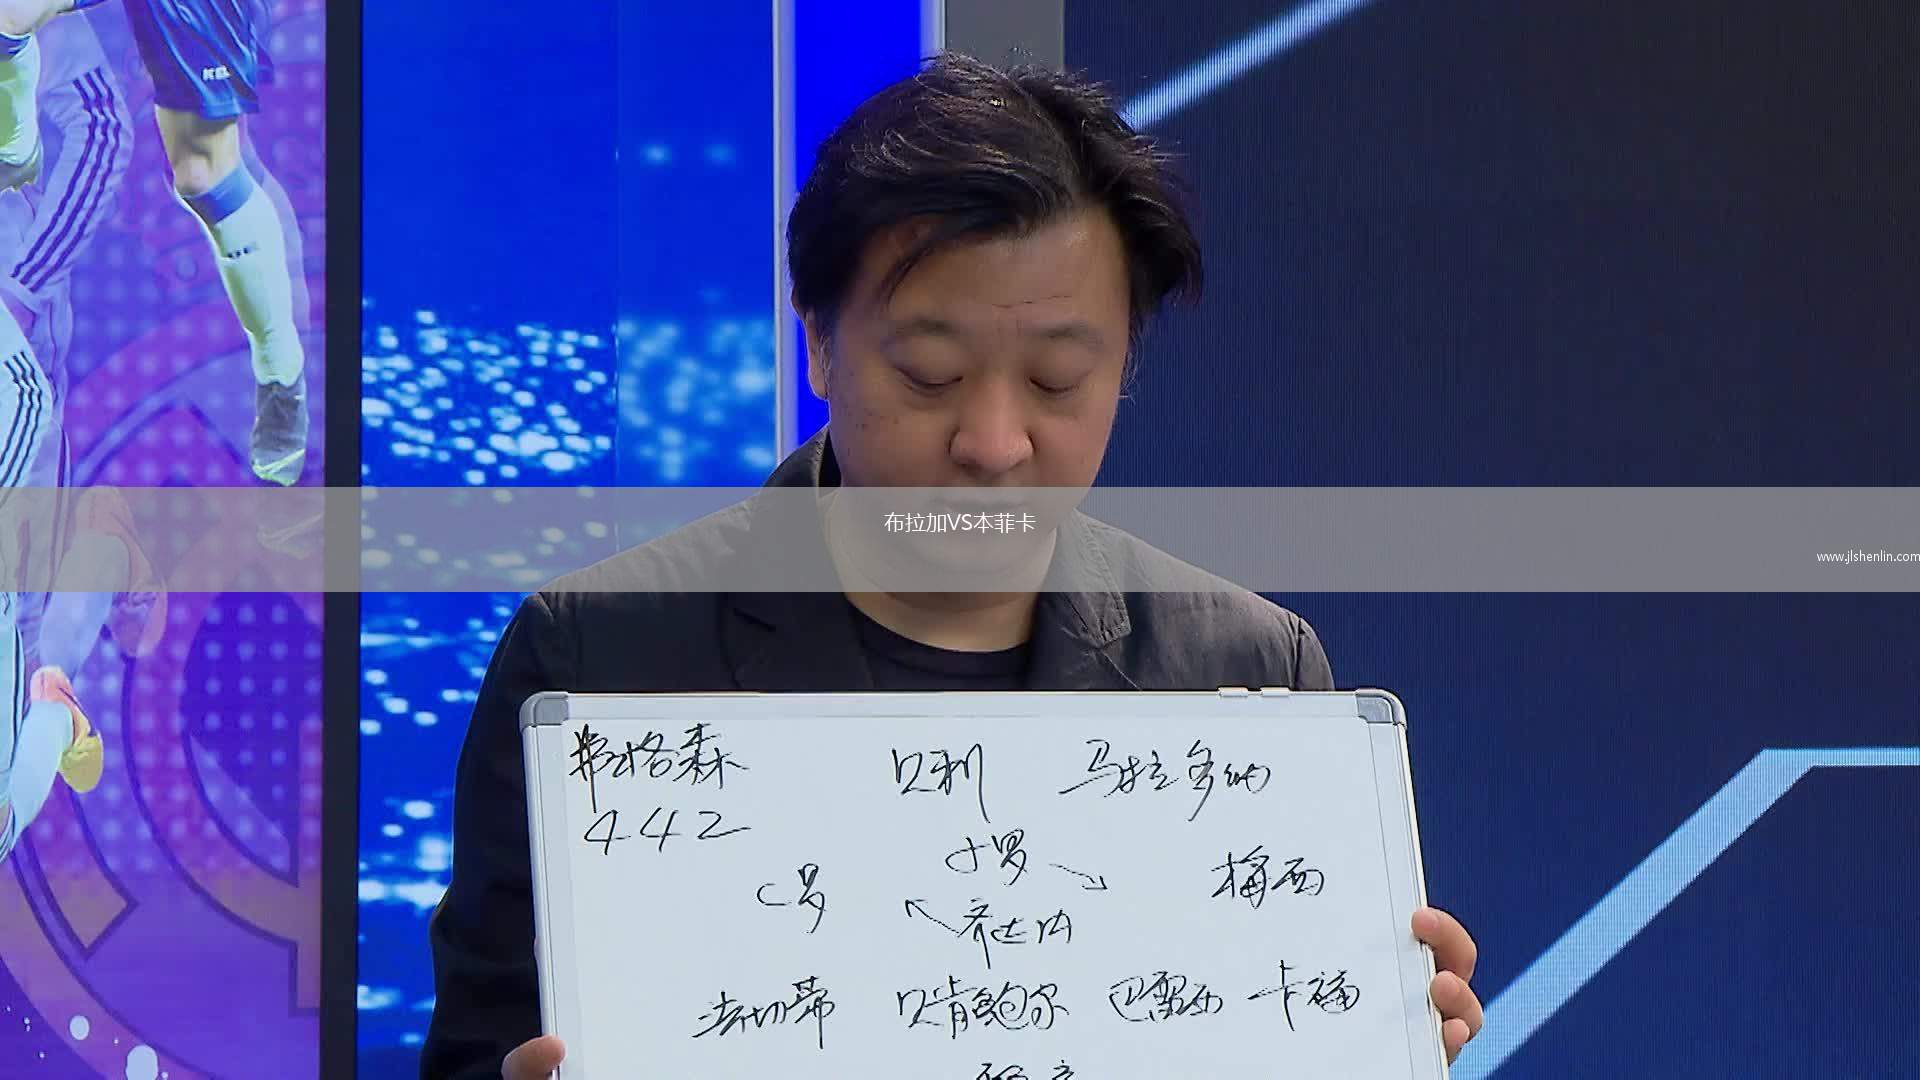 布拉加VS本菲卡
www.jlshenlin.com
弗格森 贝利 马拉多纳
442
小罗
C罗 梅西
齐达内
法切蒂 贝肯鲍尔 巴雷西 卡福